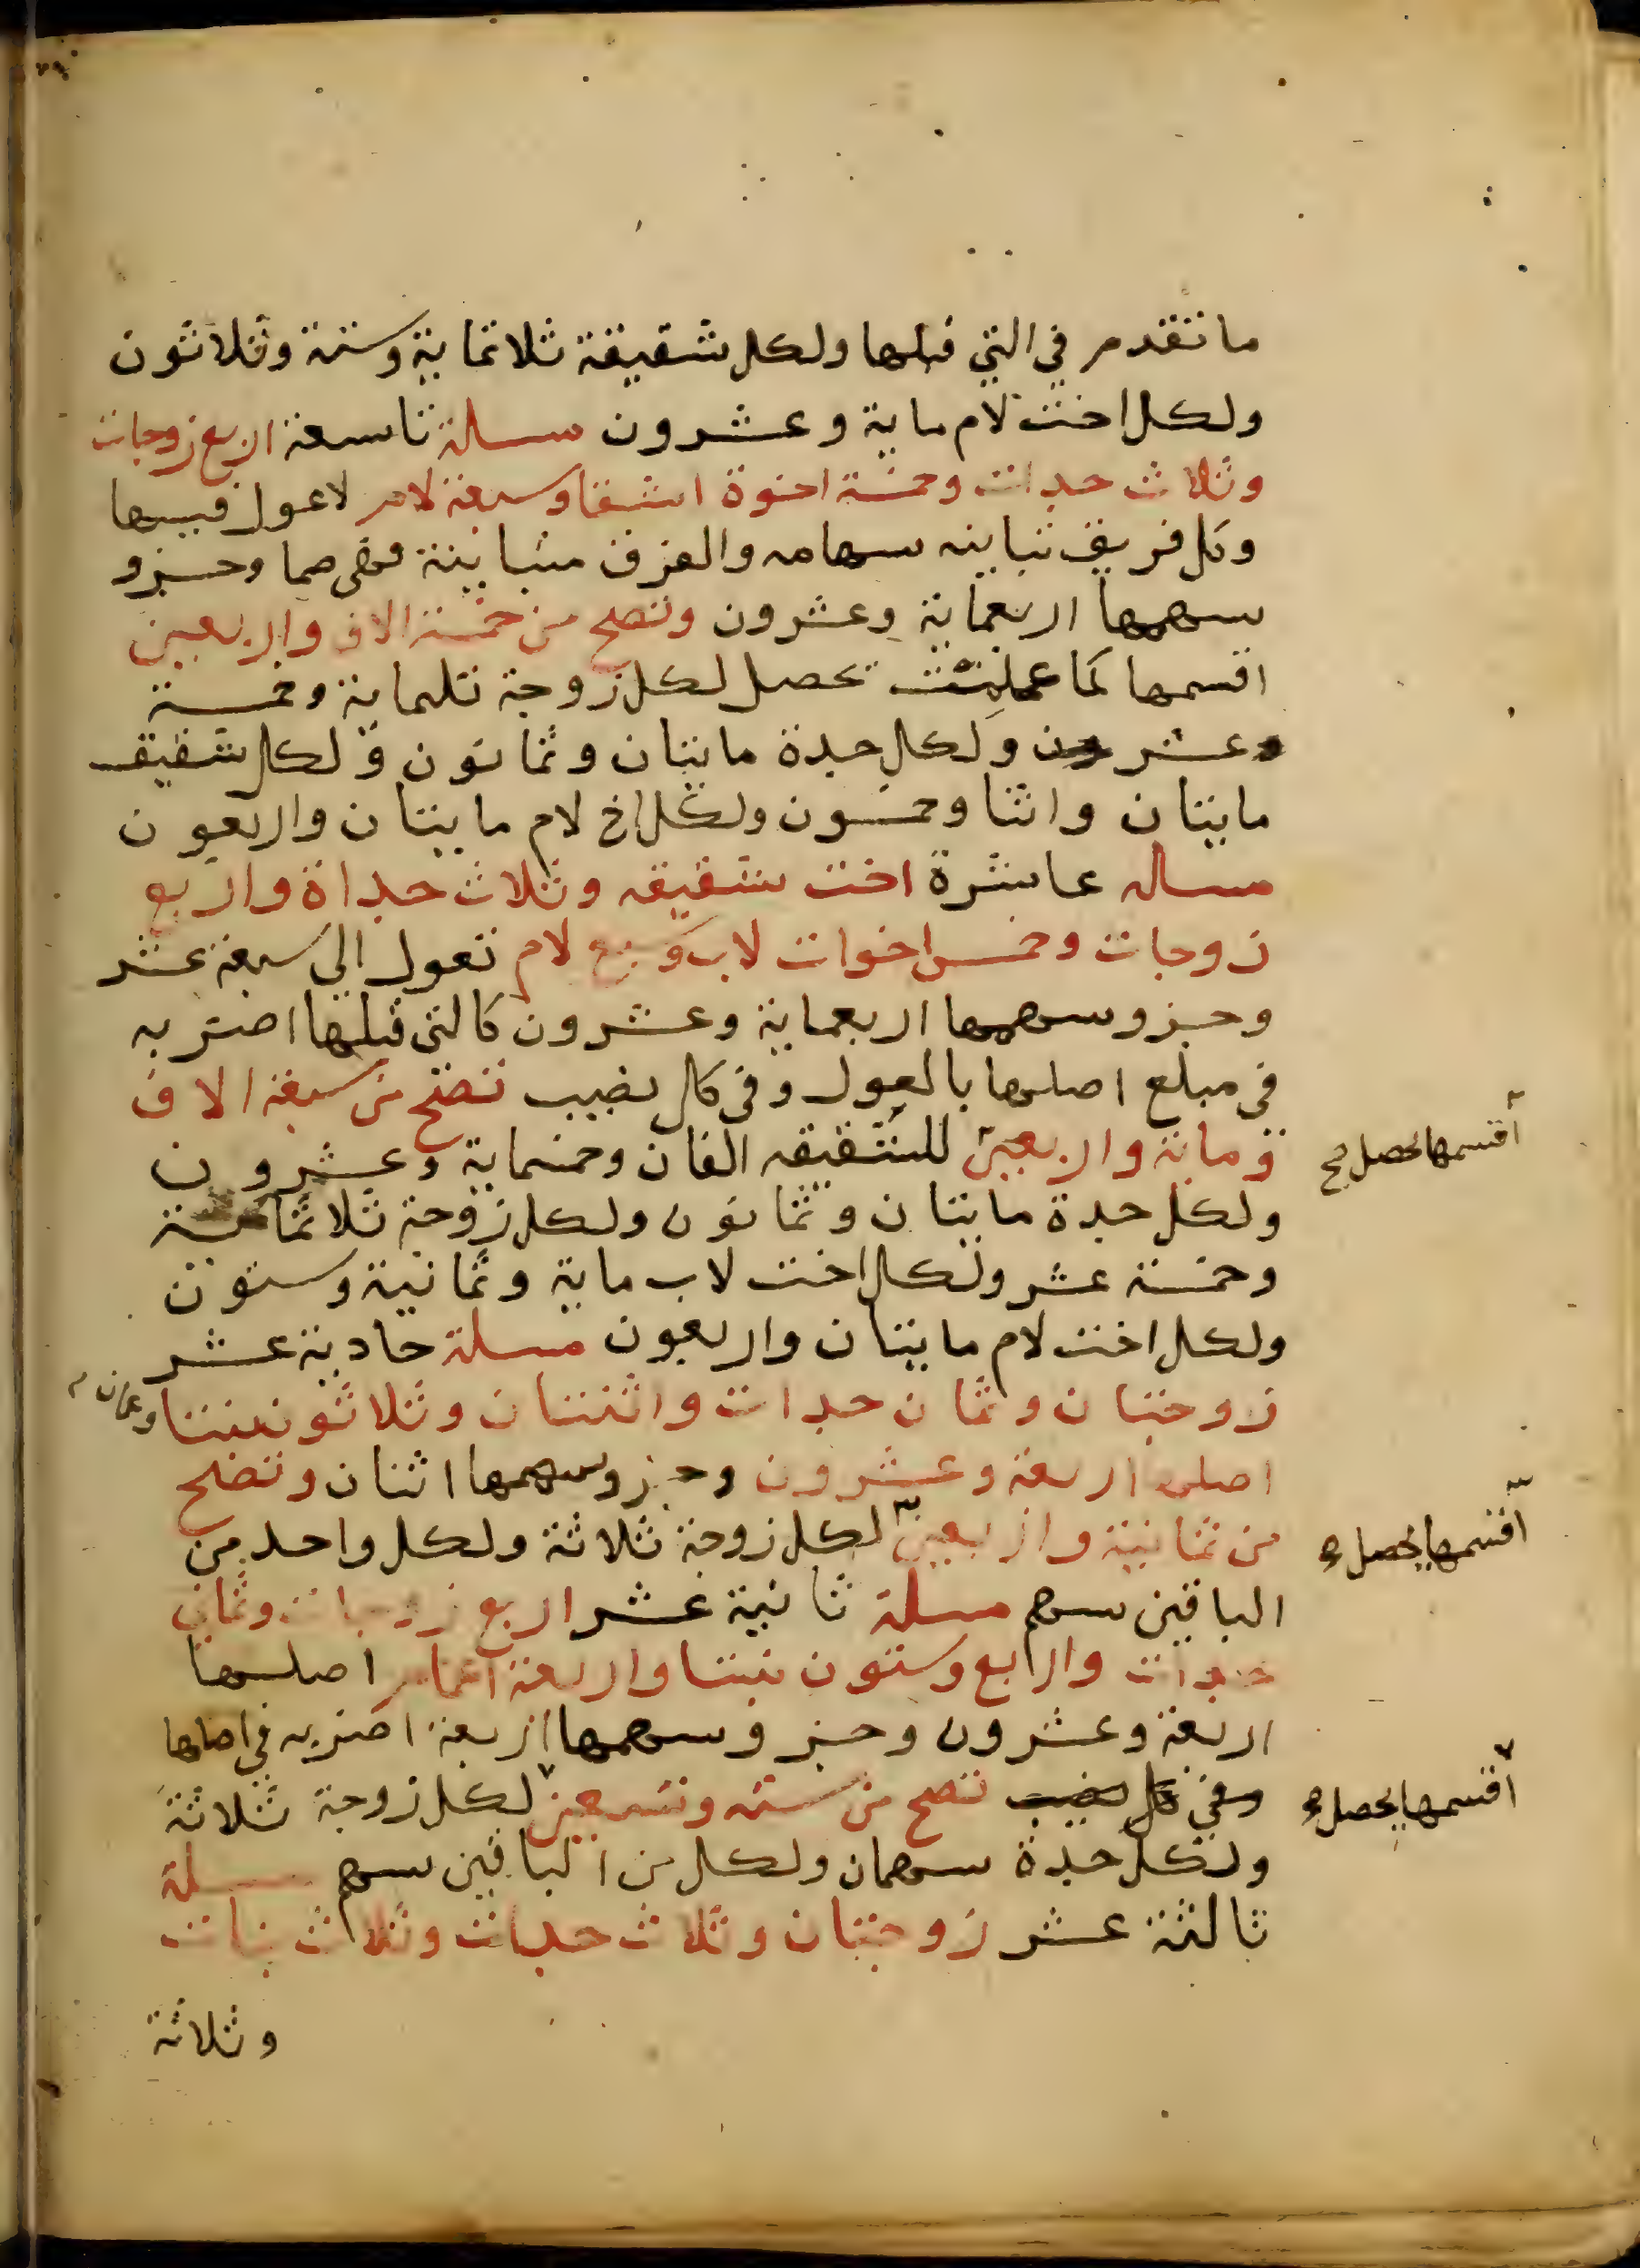 ما تقدم في التي قبلها ولكل شقيقة ثلاثماية وستة وثلاثون
ولكل اخت لام ماية وعشرون مسلة تاسعة اربع زوجات
وثلاث جدات وخمسة اخوة اشقا وسبعة لام لا عول فيها
وكل فريق تباينه سهامه والفرق متباينة فهي صما وجزو
سهمها اربعماية وعشرون وتصح من خمسة الاف واربعين
اقسمها كما عملت تحصل لكل زوجة ثلماية وخمسة
وعشر ولكل جدة مايتان وثمانون ولكل شقيق
مايتان واثنا وخمسون ولكل اخ لام مايتان واربعون
مساله عاشرة اخت شقيقه وثلاث جداة واربع
زوجات وخمس اخوات لاب واربع لام تعول الي سبعة عشر
وجزو سهمها اربعماية وعشرون كالتي قبلها اضربه
في مبلغ اصلها بالعول وفي كل نصيب تصح من سبعة الاف
وماية واربعين للشقيقه الفان وخمسماية وعشرون
اقسمها يحصل
ولكل جدة مايتان وثمانون ولكل زوجة ثلاثماية
وخمسة عشر ولكل اخت لاب ماية وثمانية وستون
ولكل اخت لام مايتان واربعون مسلة حادية عشر
زوجتان وثمان جدات واثنتان وثلاثون بنتا وعمان
اصلها اربعة وعشرون وجزو سهمها اثنان وتصح
من ثمانية واربعين لكل زوجة ثلاثة ولكل واحد من
اقسمها يحصل
الباقين سهم مسلة ثانية عشر اربع زوجات وثمان
جدات واربع وستون بنتا واربعة اعمام اصلها
اربعة وعشرون وجزو سهمها اربعة اضربه في اصلها
وفي كل نصيب تصح من ستة وتسعين لكل زوجة ثلاثة
اقسمها يحصل
ولكل جدة سهمان ولكل من الباقين سهم مسلة
ثالثة عشر زوجتان وثلاث جدات وثلاث بنات
وثلاثة